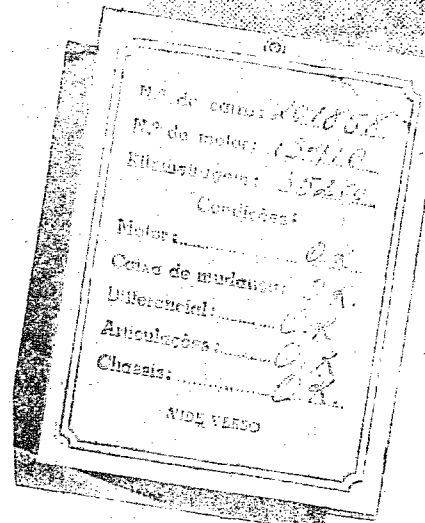 N.º do carro:
N.º do motor:
Kilometragem:
Condições:
Motor: O.K.
Caixa de mudança: O.K.
Differencial: O.K
Articulações: O.K
Chassis: O.K.
VIDE VERSO